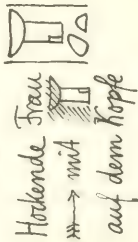 Hockende Frau
mit
auf dem Kopfe